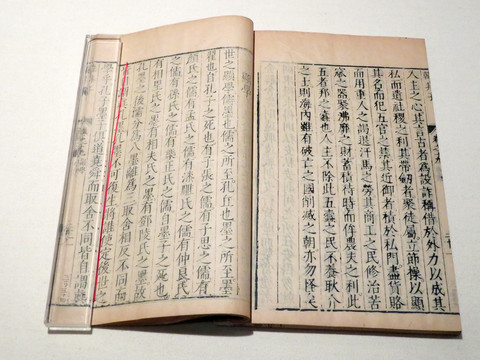 人主之心其言古者為設詐稱借於外力以成其
私而遺社稷之利其帶劒者聚徒屬立節操以顯
其名而犯五官之禁其近御者積於私門盡貨賂
而用重人之謁退汗馬之勞其商工之民修治苦
窳之器聚沸靡之財蓄積待時而侔農夫之利此
五者邦之蠹也人主不除此五蠹之民不養耿介
之士則海內雖有破亡之國削滅之朝亦勿怪矣
顯學
世之顯學儒墨也儒之所至孔丘也墨之所至墨
翟也自孔子之死也有子張之儒有子思之儒有
顏氏之儒有孟氏之儒有漆雕氏之儒有仲良氏
之儒有孫氏之儒有樂正氏之儒自墨子之死也
有相里氏之墨有相夫氏之墨有鄧陵氏之墨故
孔墨之後儒分為八墨離為三取舍相反不同而
孔墨不可復生將誰使定後世之
學乎孔子墨子俱道堯舜而取舍不同皆自謂真